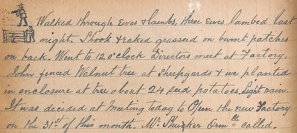 Walked through Ewes & Lambs, three Ewes lambed last
night. Shook & raked grasseed on burnt patches
on back. Went to 12 o'clock Directors meet at Factory.
John fenced Walnut tree at Shepyards & we planted
in enclosure at tree about 24 seed potatoes, light rain.
It was decided at Meeting today to Open the new Factory
on the 31st of this month. Mr called.